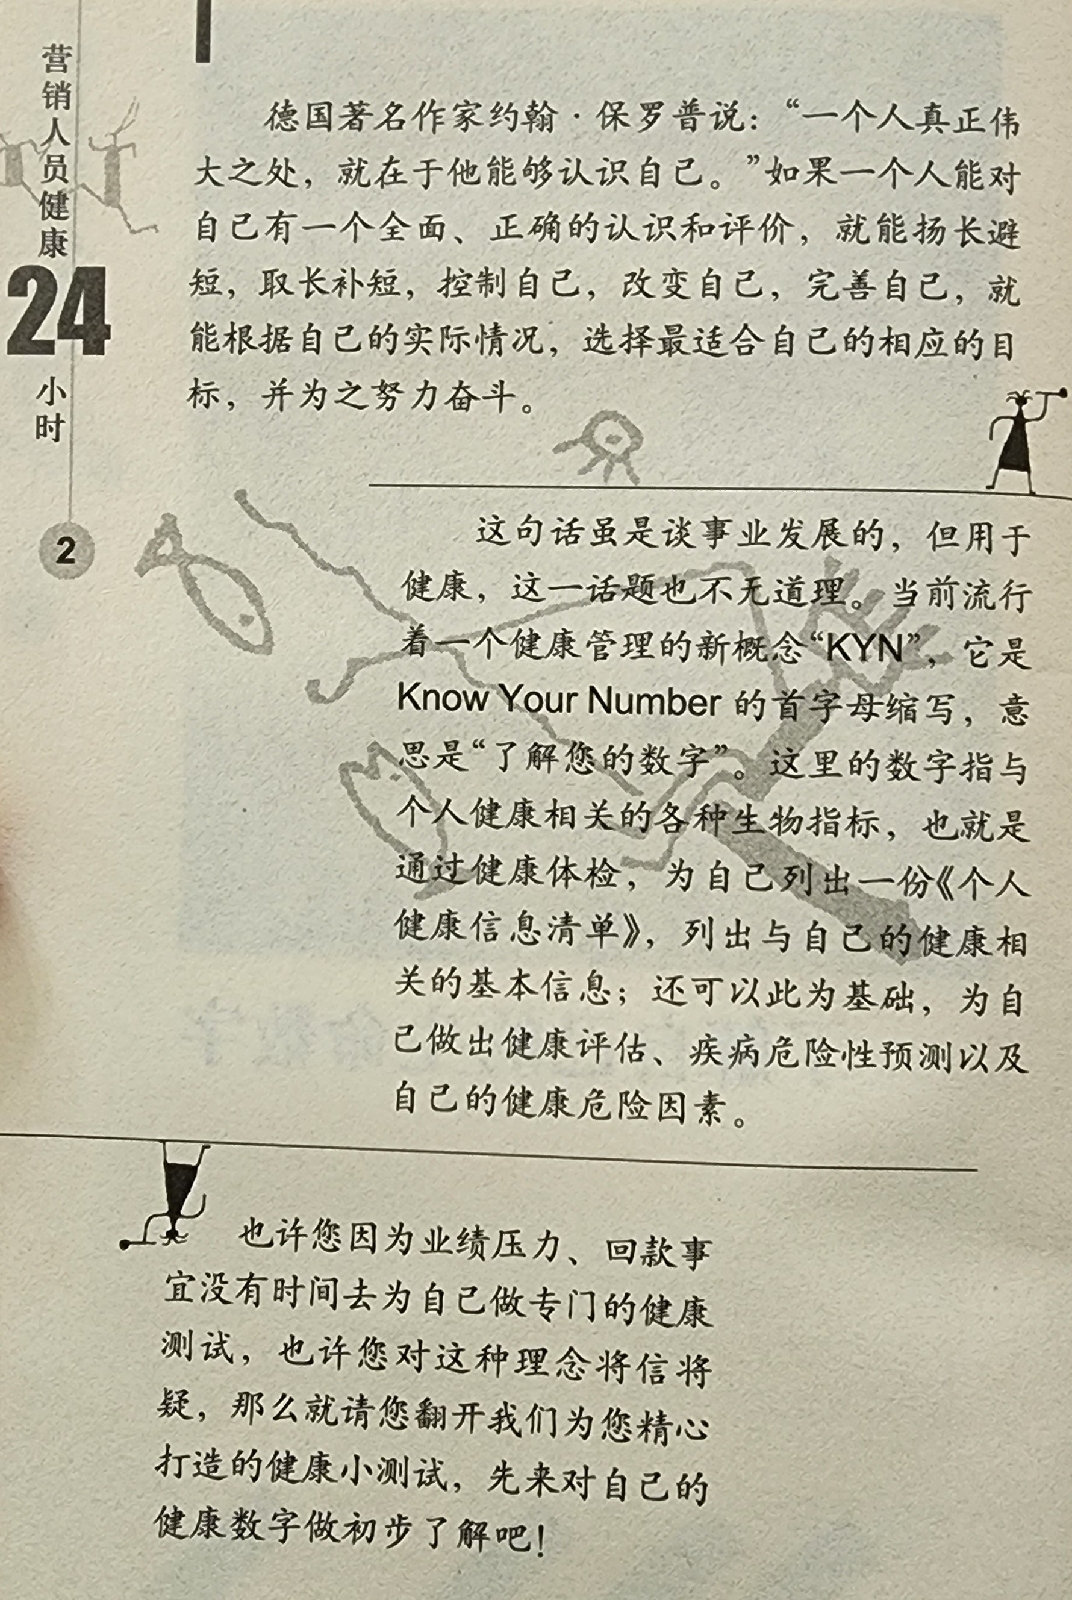 营销人员健康
24
小时
2
德国著名作家约翰·保罗普说：“一个人真正伟
大之处，就在于他能够认识自己。”如果一个人能对
自己有一个全面、正确的认识和评价，就能扬长避
短，取长补短，控制自己，改变自己，完善自己，就
能根据自己的实际情况，选择最适合自己的相应的目
标，并为之努力奋斗。
这句话虽是谈事业发展的，但用于
健康，这一话题也不无道理。当前流行
着一个健康管理的新概念“KYN”，它是
Know Your Number 的首字母缩写，意
思是“了解您的数字”。这里的数字指与
个人健康相关的各种生物指标，也就是
通过健康体检，为自己列出一份《个人
健康信息清单》，列出与自己的健康相
关的基本信息；还可以此为基础，为自
己做出健康评估、疾病危险性预测以及
自己的健康危险因素。
也许您因为业绩压力、回款事
宜没有时间去为自己做专门的健康
测试，也许您对这种理念将信将
疑，那么就请您翻开我们为您精心
打造的健康小测试，先来对自己的
健康数字做初步了解吧！